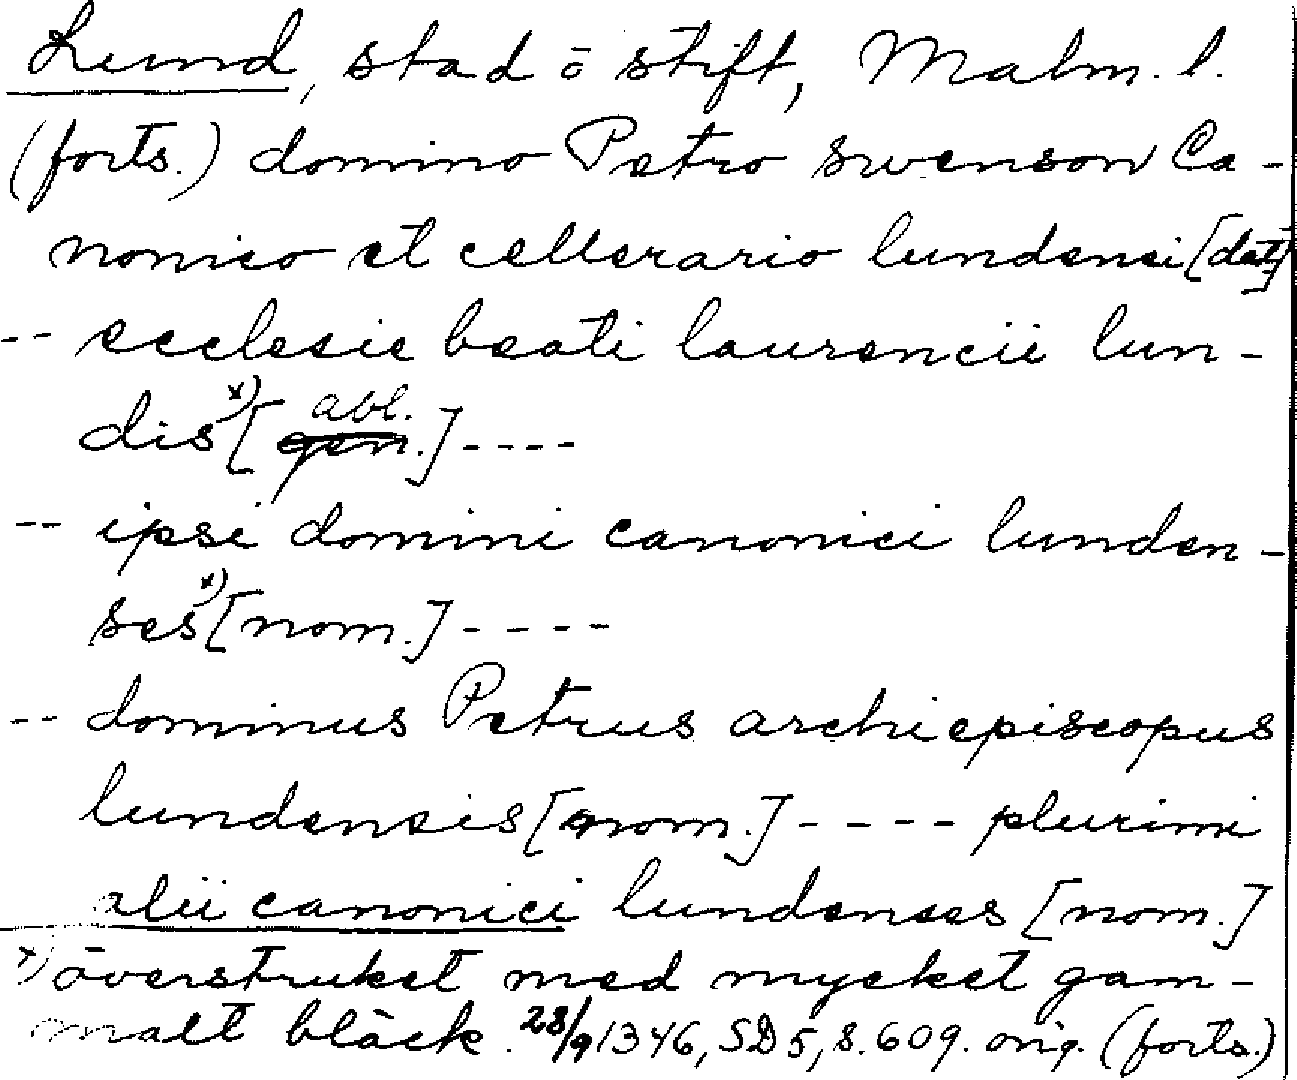 Lund, stad ō stift, Malm. l.
(forts.) domino Petro swenson Ca-
nonico et cellerario lundensi [dat.]
-- ecclesie beati laurencii lun-
dis x) [gen. abl.] ----
-- ipsi domini canonici lunden-
ses x) [nom.] ----
-- dominus Petrus archiepiscopus
lundensis [nom.] ---- plurimi
alii canonici lundenses [nom.]
x) överstruket med mycket gam-
malt bläck. 28/9 1346, SD 5, s. 609. orig. (forts.)